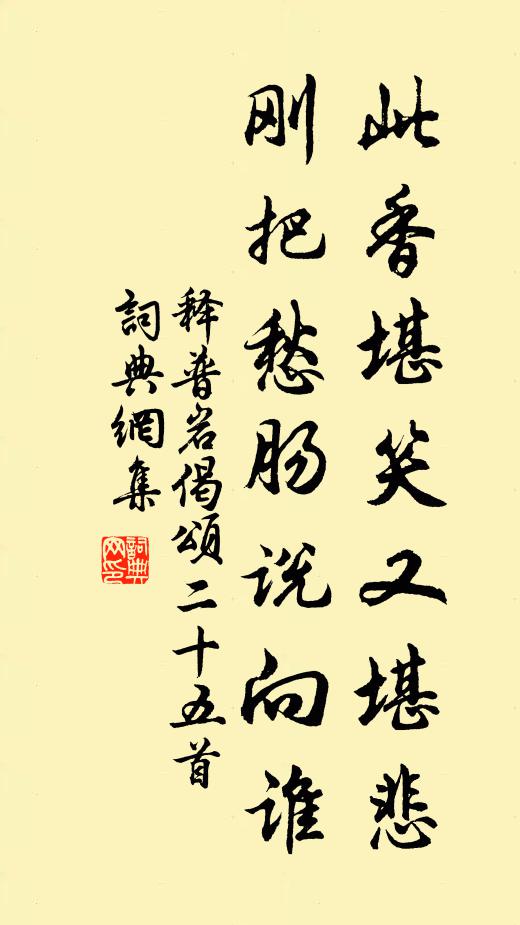 此香堪笑又堪悲
刚把愁肠说向谁
释普岩偈颂二十五首
詞典網集
詞典网印